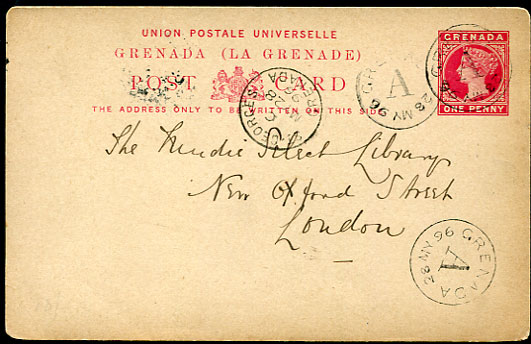 UNION POSTALE UNIVERSELLE
GRENADA (LA GRENADE)
POST CARD
THE ADDRESS ONLY TO BE WRITTEN ON THIS SIDE
GRENADA
ONE PENNY
A
28 MY 96
ST GEORGES
GRENADA
The Mudie Select Library
New Oxford Street
London
GRENADA
A
28 MY 96